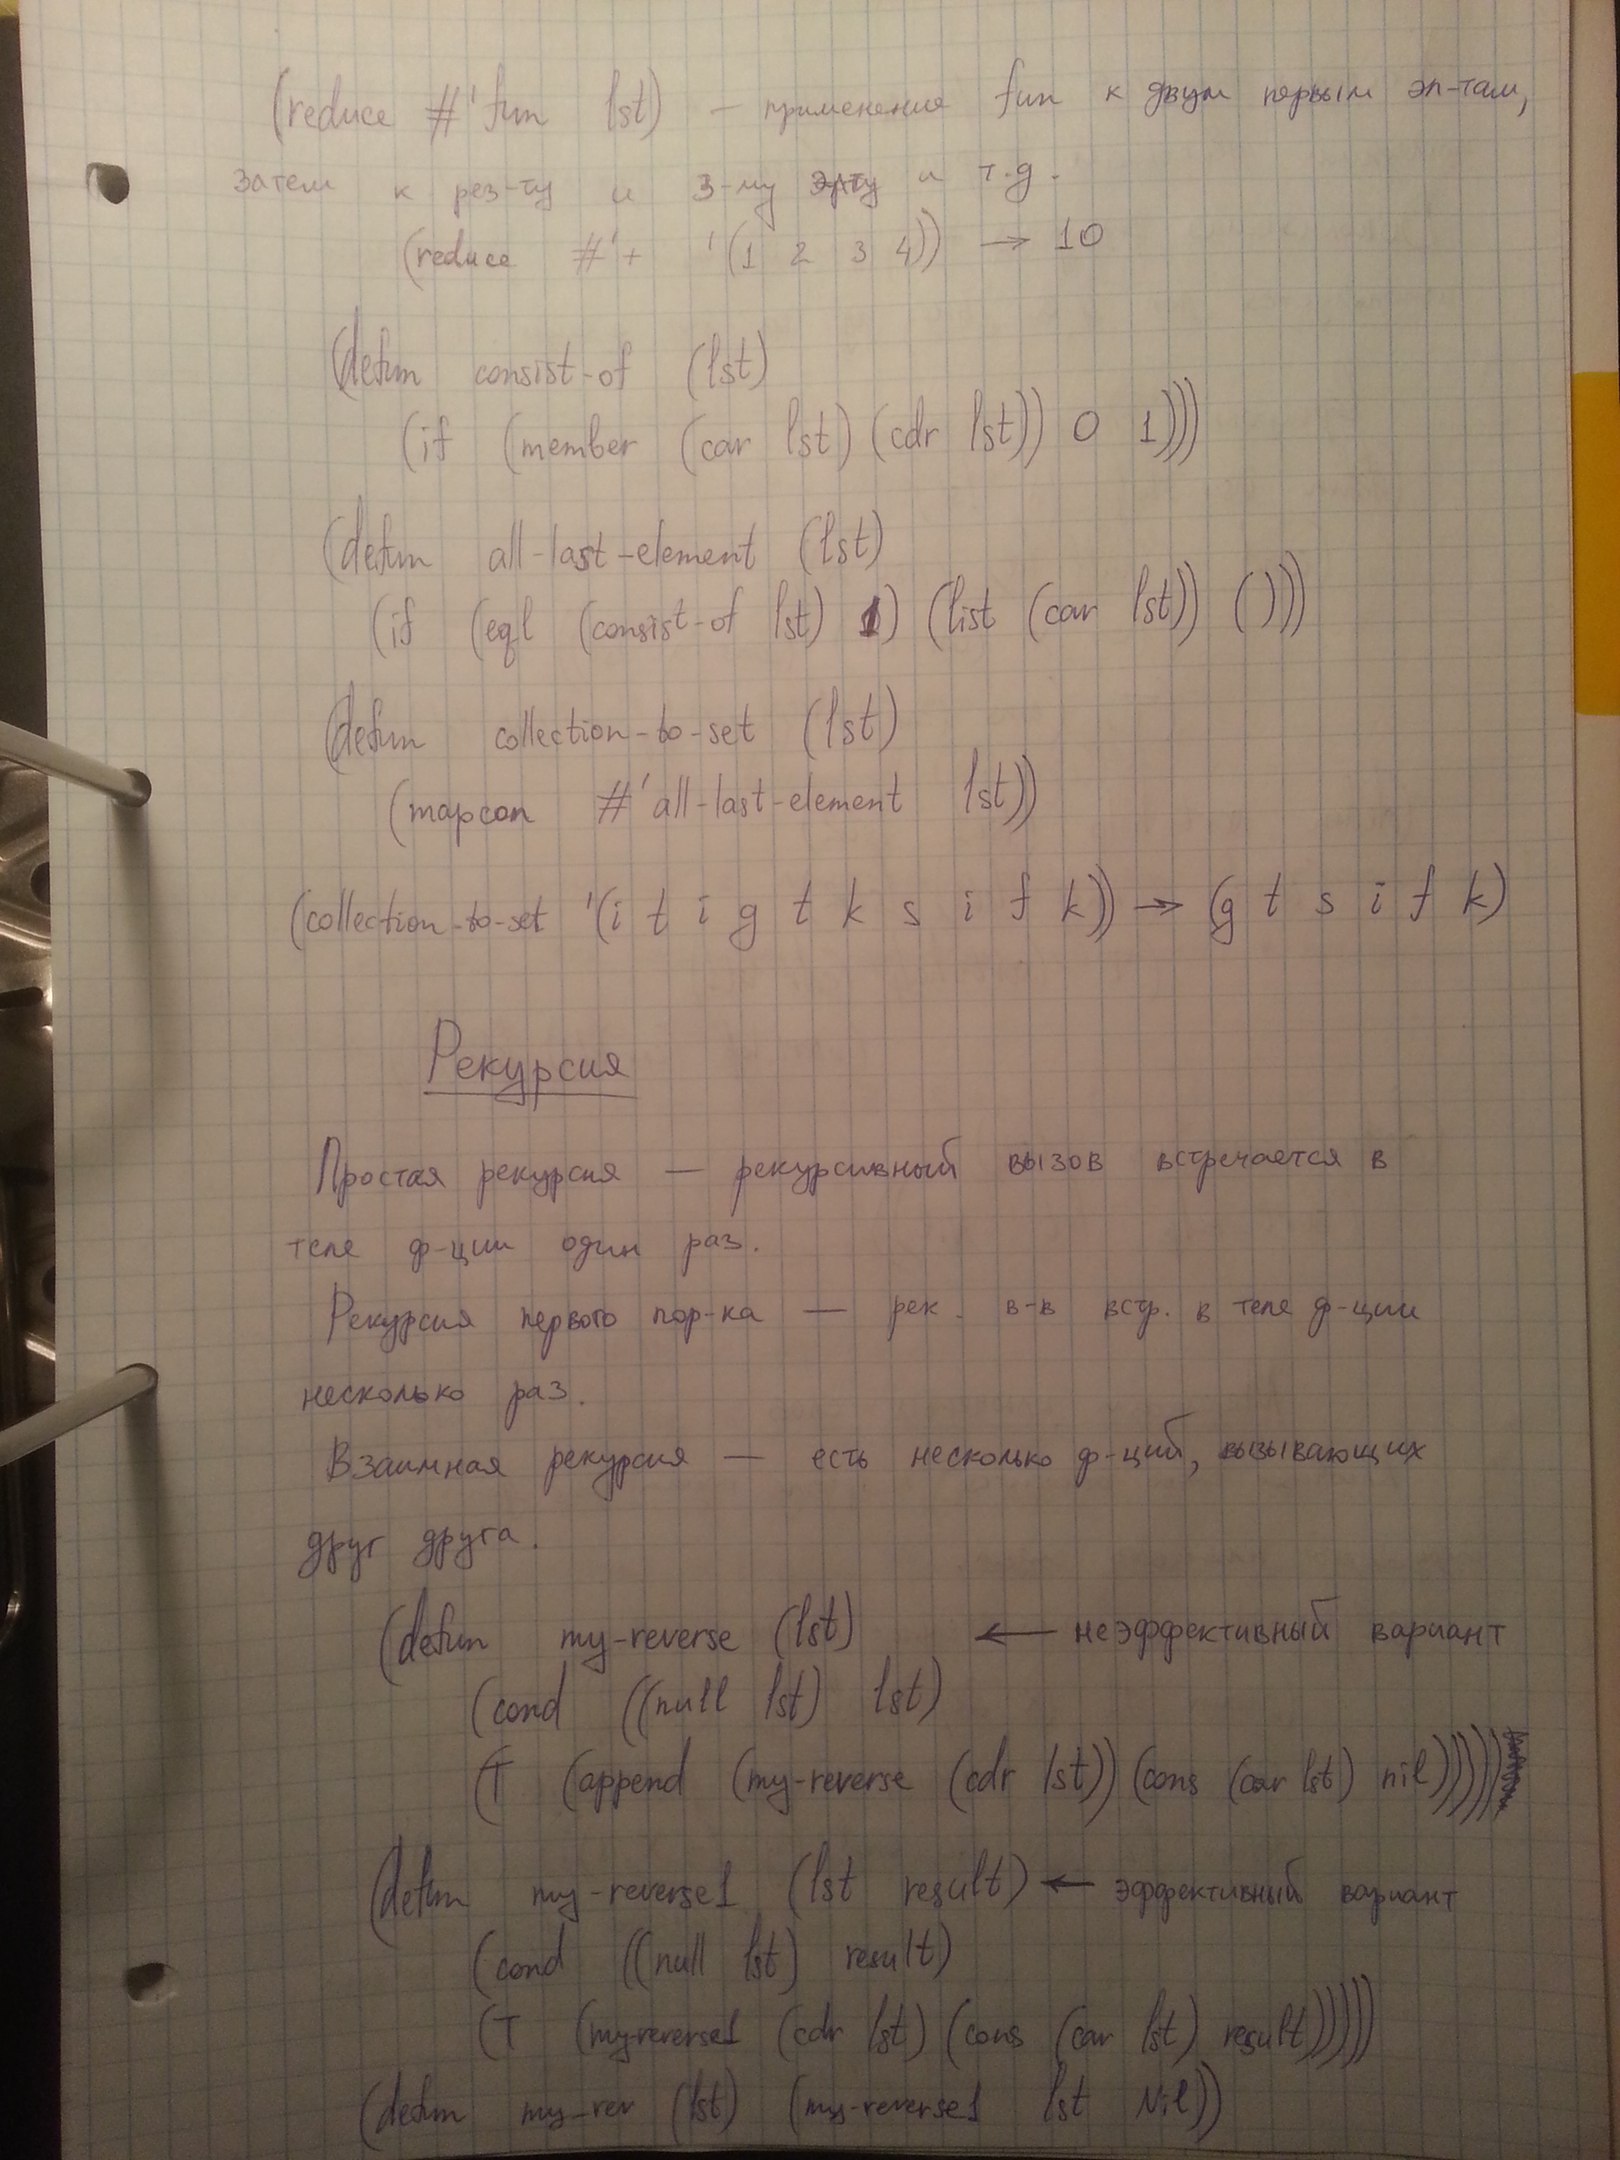 (reduce #'fun lst) — применение fun к двум первым эл-там,
затем к рез-ту и 3-му эл-ту и т.д.
(reduce #'+ '(1 2 3 4)) → 10
(defun consist-of (lst)
(if (member (car lst) (cdr lst)) 0 1)))
(defun all-last-element (lst)
(if (eql (consist-of lst) 1) (list (car lst)) ()))
(defun collection-to-set (lst)
(mapcon #'all-last-element lst))
(collection-to-set '(i t i g t k s i f k)) → (g t s i f k)
Рекурсия
Простая рекурсия — рекурсивный вызов встречается в
теле ф-ции один раз.
Рекурсия первого пор-ка — рек. в-в встр. в теле ф-ции
несколько раз.
Взаимная рекурсия — есть несколько ф-ций, вызывающих
друг друга.
(defun my-reverse (lst) ← неэффективный вариант
(cond ((null lst) lst)
(T (append (my-reverse (cdr lst)) (cons (car lst) nil)))))
(defun my-reverse1 (lst result) ← эффективный вариант
(cond ((null lst) result)
(T (my-reverse1 (cdr lst) (cons (car lst) result)))))
(defun my-rev (lst) (my-reverse1 lst Nil))